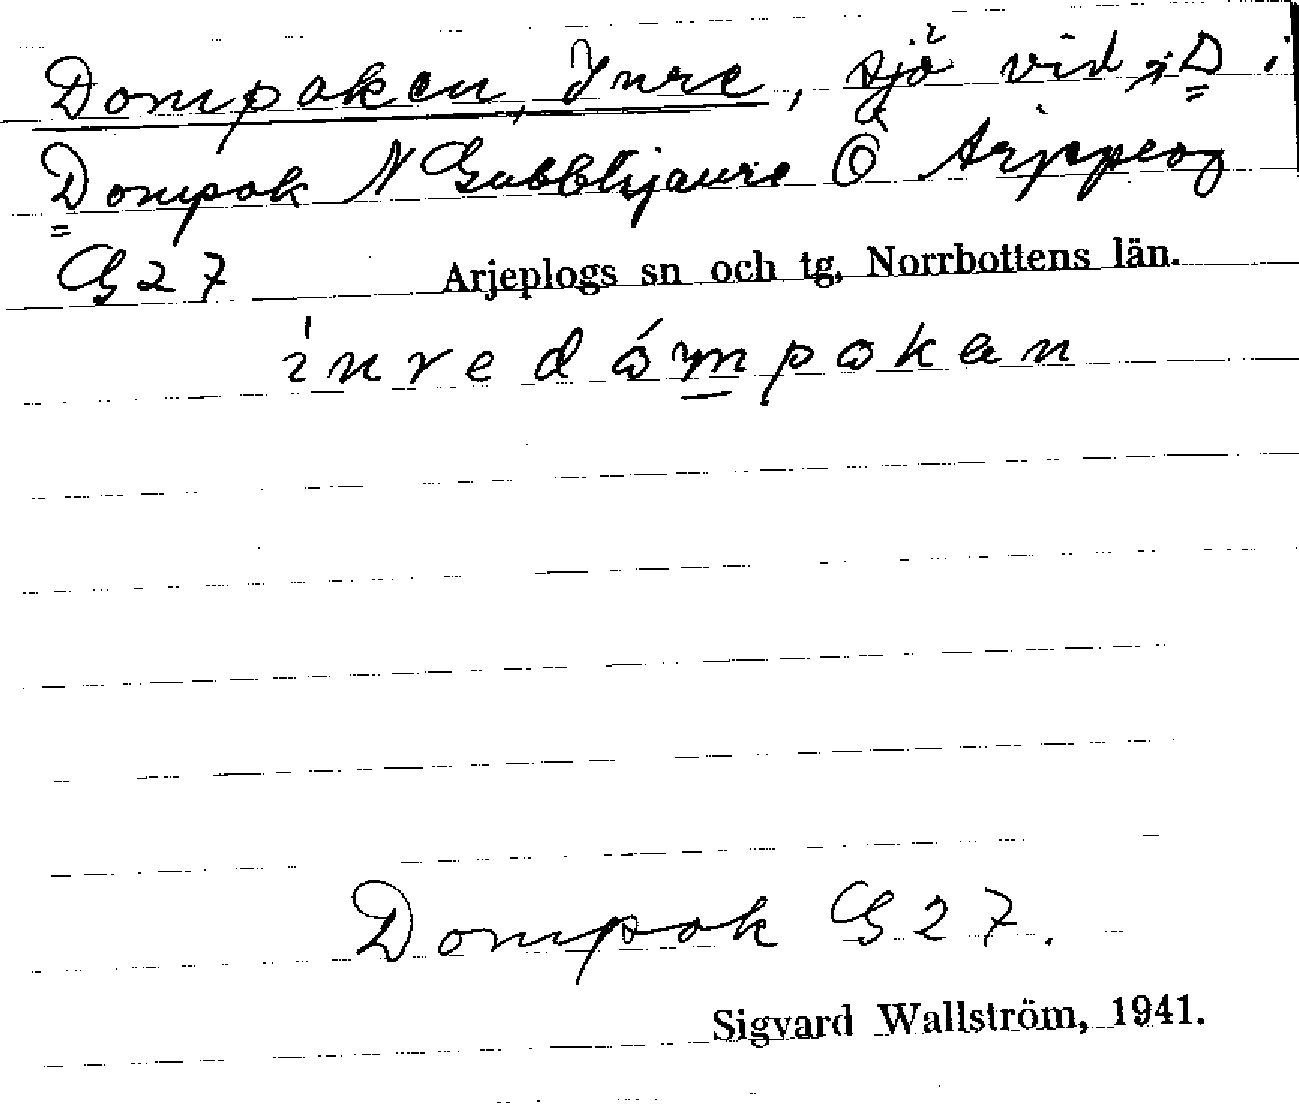 Dompaken, Inre, sjö vid gD i
Dompok N Gubblijaure Ö Arjeplog
G27 Arjeplogs sn och tg, Norrbottens län.
ínredómpokan
Dompok G27.
Sigvard Wallström, 1941.